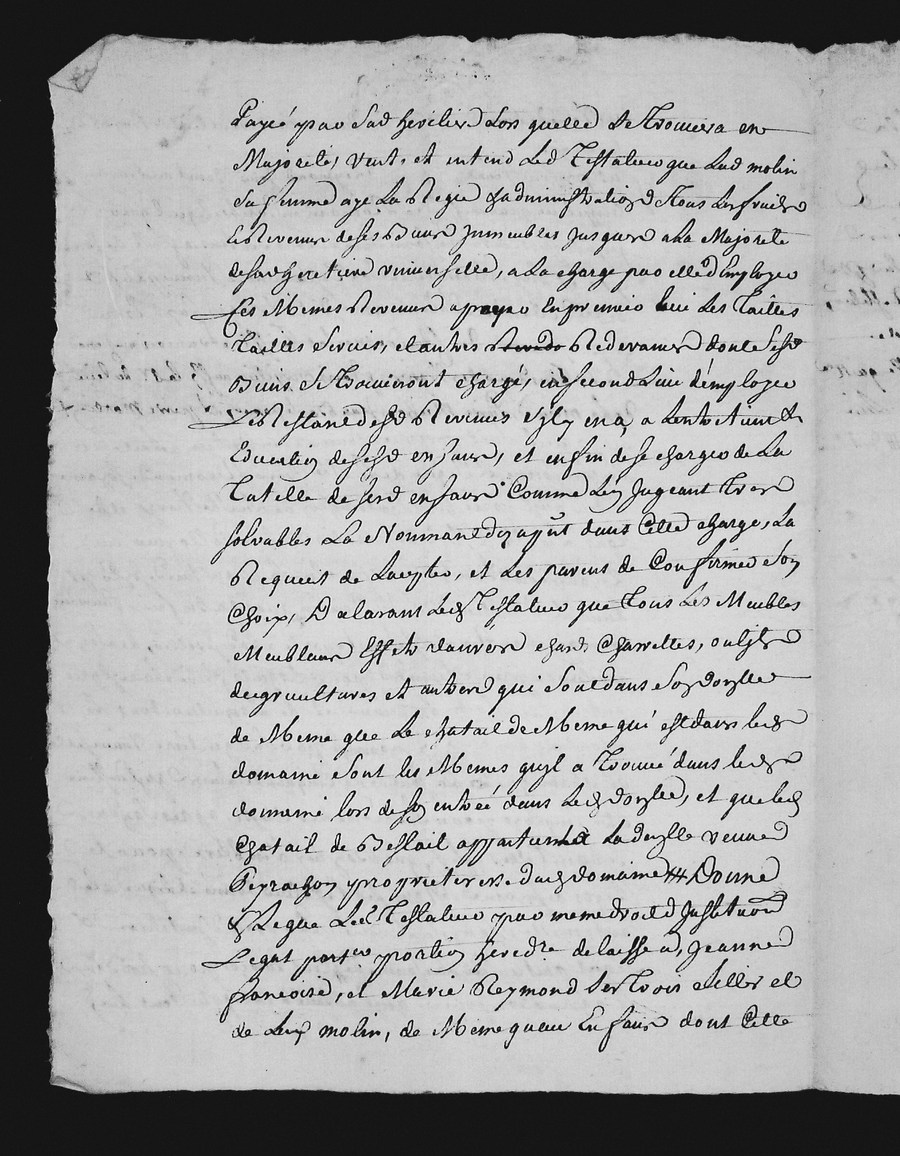 Payeé par Sad heritiere Lors quelle Se trouvera en
Majorité, veut, et entend Led Testateur que Lad molin
Sa femme aye La Regie & administration & tous Les fruits
& Revenus de ses Biens Immeubles Jusques a La Majorité
de sad heretiere universelle, a La charge par elle d'Employer
Ces Memes Revenus a payer En premier lieu Les Tailles
Tailles Servis, et autres Redevances dont Sesd
Biens Se trouveront chargé, en second Lieu d'employer
Le Restant desd Revenus s'il y en a, a Lentretien &
Education de sesd enfans, et enfin de se charger de La
Tutelle de sesd enfans Comme Len Jugeant tres
solvables La Nommant dez apnt dans Cette charge, La
Requert de Laccepter, et Les parens de Confirmer Son
Choix, Declarant Led Testateur que tous Les Meubles
Meublans Effets chars Charrettes, outils
dagricultures et autres qui sont dans Son domlle
de Meme que Le chatail de Meme qui est dans led
domaine sont les Memes quil a trouvé dans led
domaine lors de son entrée dans Led domlle, et que led
Chatail de Bestail appartient a Ladelle veuve
Peyrachon proprieteresse dud domaine Donne
& Legue Led Testateur par meme droit d Institution
Legat parter portion heredre delaisse a, Jeanne
francoise, et Marie Reymond Ses trois filles et
de Lad molin, de Meme quau Enfans dont Cette